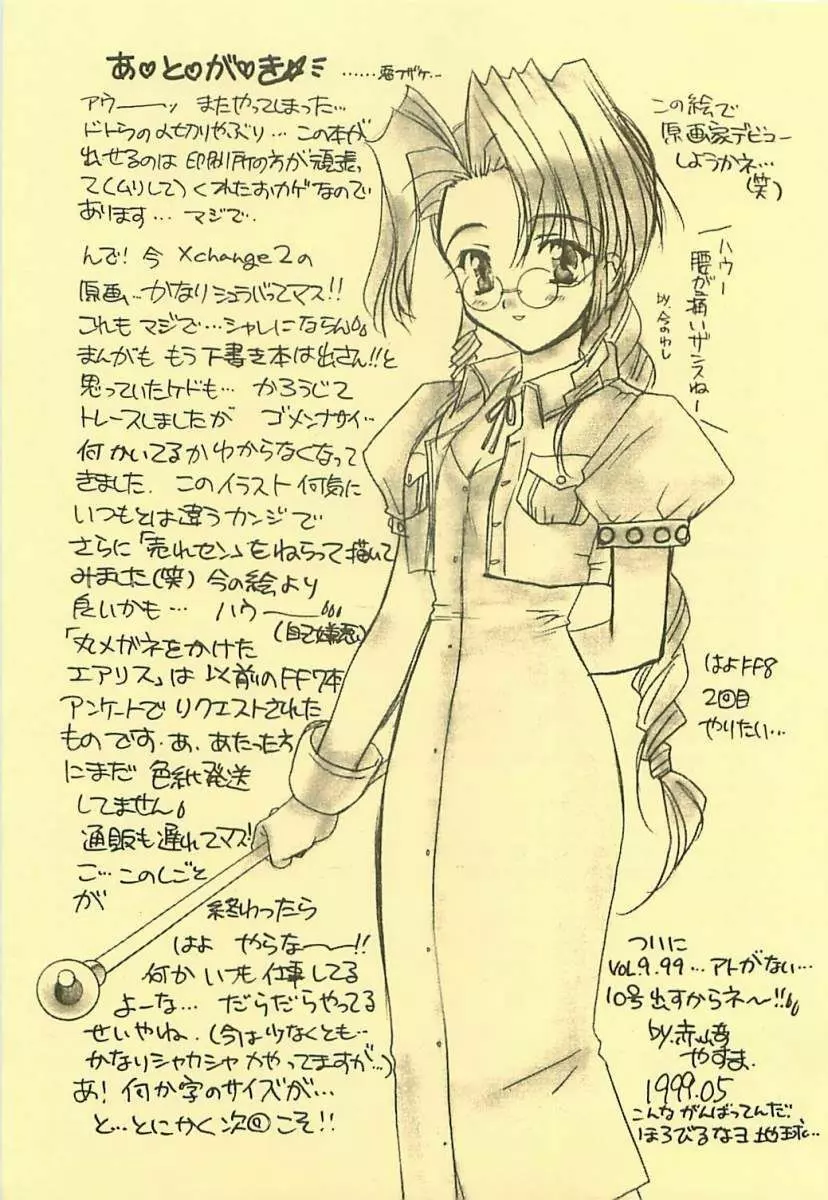 あ♡と♡が♡き☆
アウーーッ またやってしまった…
ドトウの〆切りやぶり… この本が
出せるのは 印刷所の方が頑張っ
て(ムリして)くれたおカゲなので
あります… マジで.
んで! 今 Xchange2の
原画、…かなりシュラバってマス!!
これも マジで…シャレにならん
まんがも もう下書き本は出さん!!と
思っていたケドも… かろうじて
トレースしましたが ゴメンナサイ…
何かいてるかわからなくなって
きました. このイラスト何気に
いつもとは違うカンジで
さらに「売れセン」をねらって描いて
みました(笑) 今の絵より
良いかも… ハウーー
(自己嫌悪)
「丸メガネをかけた
エアリス」は 以前のFF7本
アンケートでリクエストされた
ものです. あ、あたった方
にまだ 色紙発送
してません
通販も遅れてマス!
こ… このしごと
が
終わったら
はよ やらな〜〜!!
何かいつも仕事してる
よーな… だらだらやってる
せいやね. (今は少なくとも…
かなりシャカシャカやってますが…)
あ! 何か字のサイズが…
と…とにかく次回こそ!!
この絵で
原画家デビュー
しようかネ…
(笑)
ハウー
腰が痛いザンスねー
by.今のわし
はよFF8
2回目
やりたい…
ついに
VOL.9.99…アトがない…
10号出すからネ〜!!
by.赤山
やすま.
1999.05
こんながんばってんだ.
ほろびるなヨ 地球…